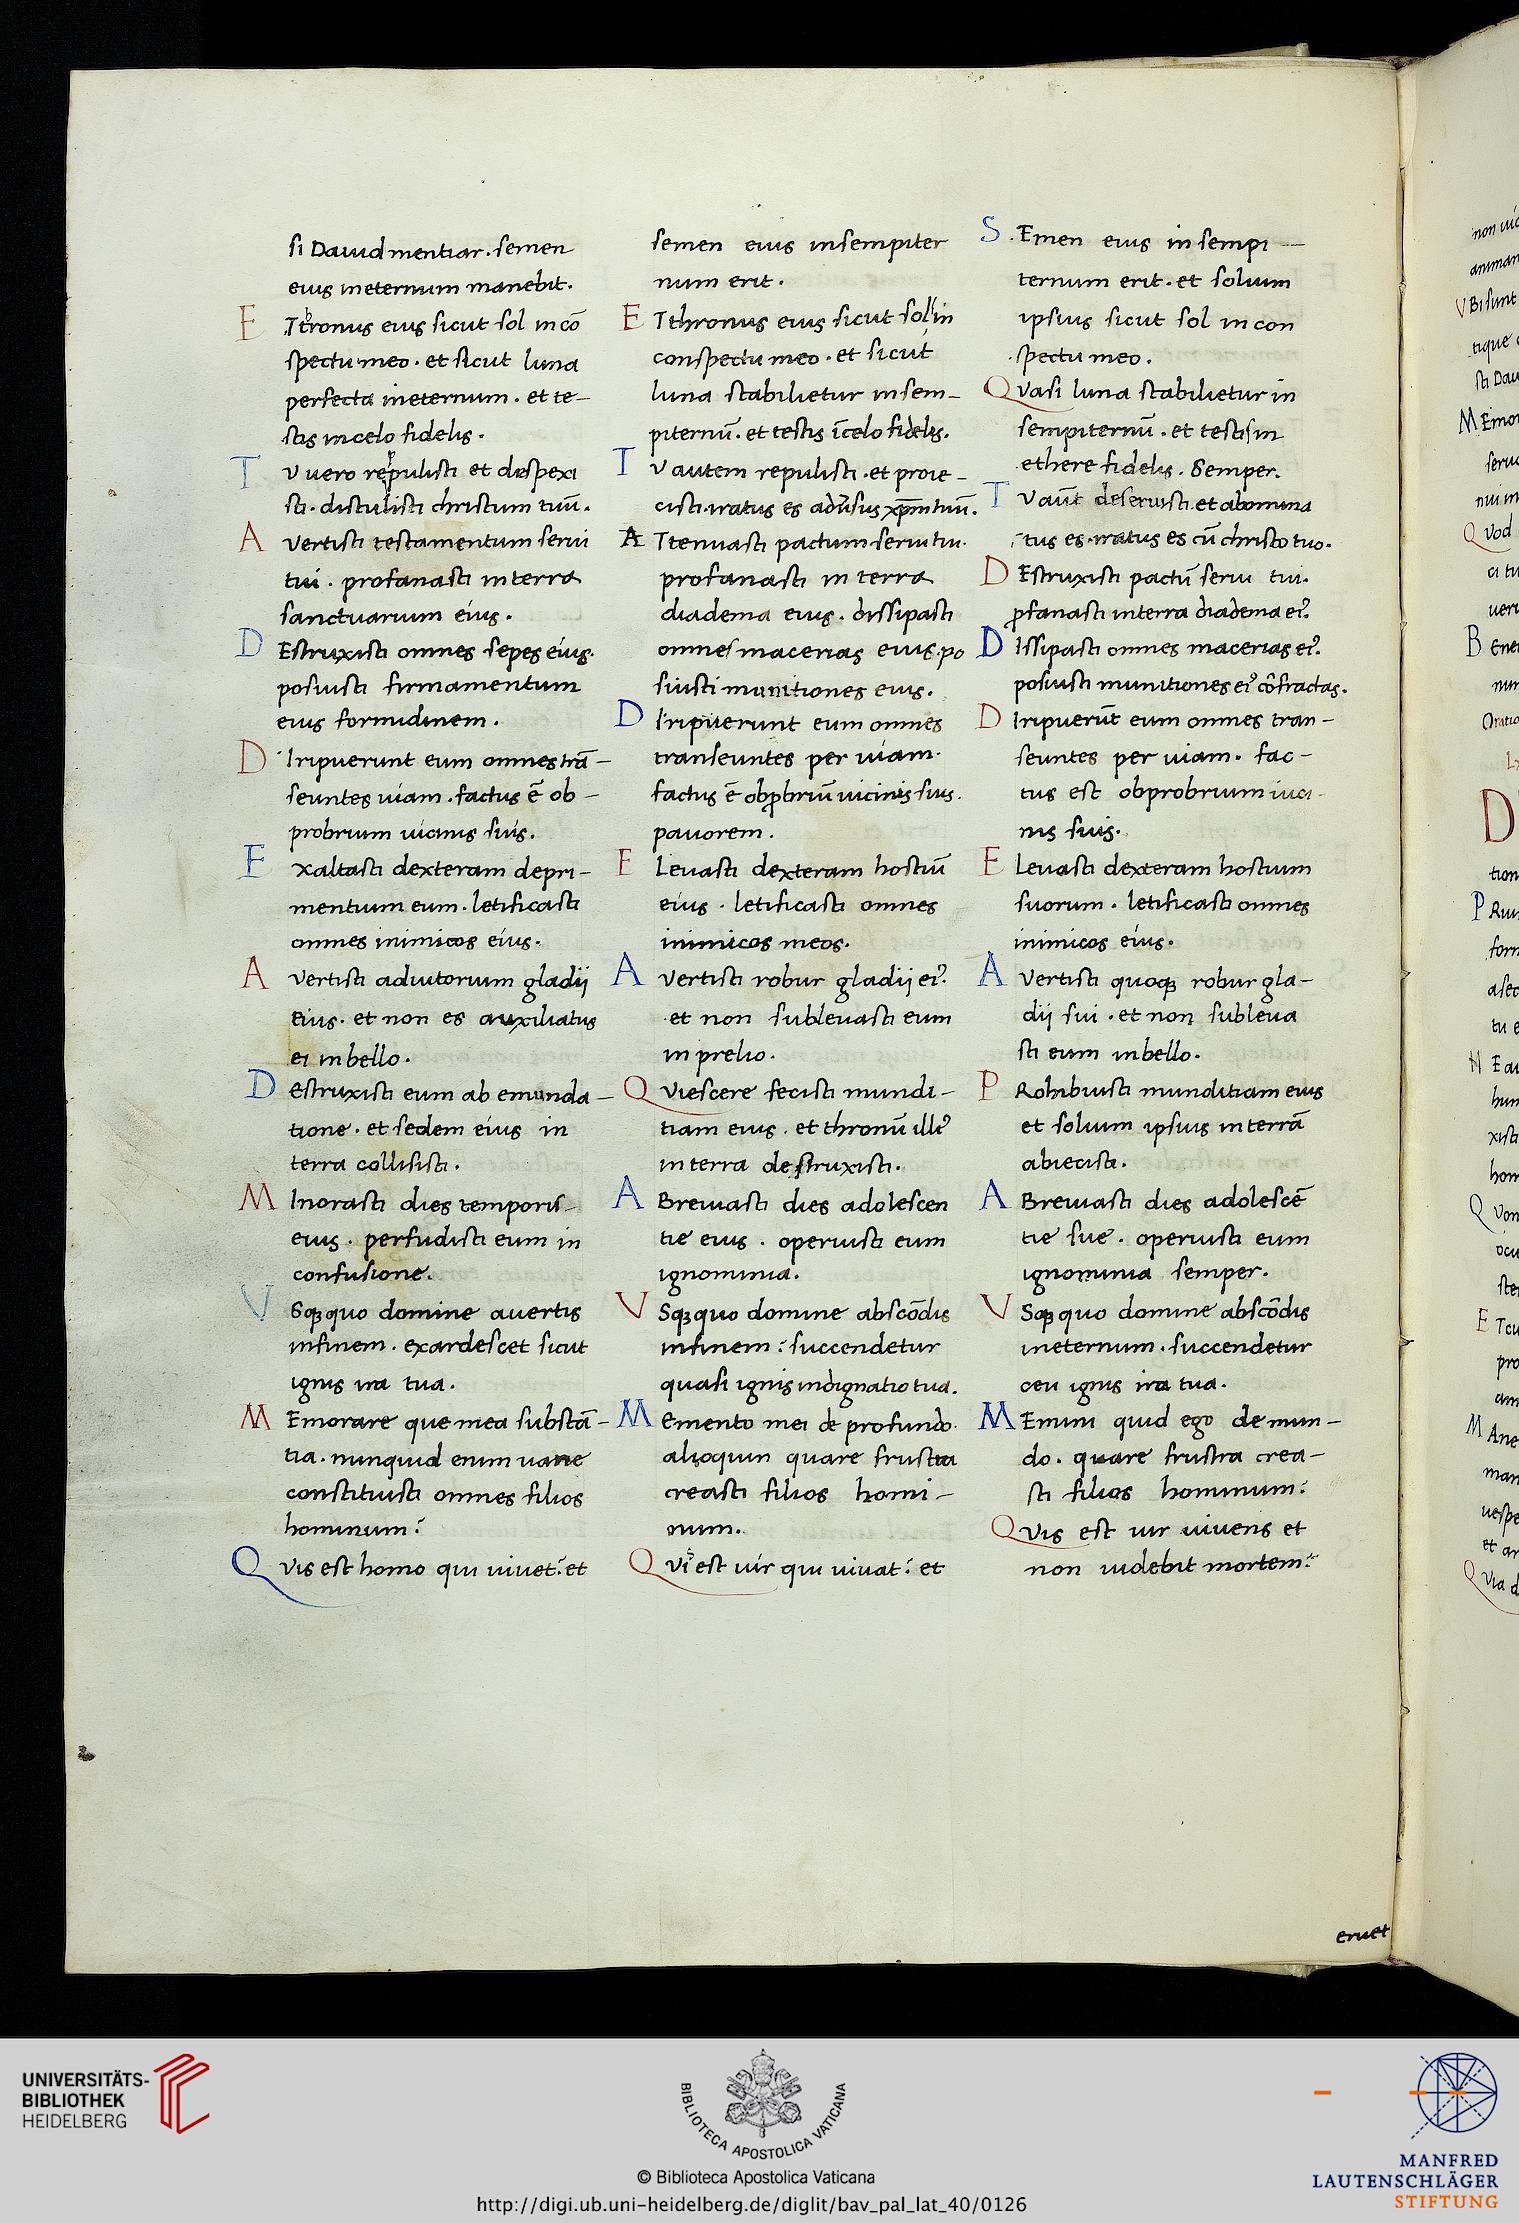 si Dauid mentiar. semen
eius ineternum manebit.
ET tronus eius sicut sol incō
spectu meo. et sicut luna
perfecta ineternum. et te-
stis incelo fidelis.
Tv uero repulisti et dispexi
sti. distulisti christum tuū.
Avertisti testamentum serui
tui. profanasti interra
sanctuarium eius.
DEstruxisti omnes sepes eius.
posuisti firmamentum
eius formidinem.
DIripuerunt eum omnes trā-
seuntes uiam. factus ē ob-
probrium uicinis suis.
Exaltasti dexteram depri-
mentium eum. letificasti
omnes inimicos eius.
Avertisti adiutorium gladij
eius. et non es auxiliatus
ei inbello.
Destruxisti eum ab emunda-
tione. et sedem eius in
terra collisisti.
MInorasti dies temporis
eius. perfudisti eum in
confusione.
VSqꝫ quo domine avertis
infinem. exardescet sicut
ignis ira tua.
MEmorare que mea substā-
tia. nunquid enim uane
constituisti omnes filios
hominum?
Qvis est homo qui uiuet? et
semen eius insempiter
num erit.
ET thronus eius sicut sol in
conspectu meo. et sicut
luna stabilietur insem-
piternū. et testis īcelo fidelis.
Tv autem repulisti. et proie-
cisti. iratus es
ATtenuasti pactum serui tui.
profanasti in terra
diadema eius. dissipasti
omnes macerias eius. po
suisti munitiones eius.
DIripuerunt eum omnes
transeuntes per uiam.
factus ē obꝓbriū uicinis suis.
pavorem.
ELevasti dexteram hostiū
eius. letificasti omnes
inimicos meos.
Avertisti robur gladij ei9.
et non sublevasti eum
in prelio.
Qviescere fecisti mundi-
tiam eius. et thronū illi9
in terra destruxisti.
ABreuiasti dies adolescen
tie eius. operuisti eum
ignominia.
VSqꝫ quo domine abscōdis
infinem? succendetur
quasi ignis indignatio tua.
Memento mei de profundo.
alioquin quare frustra
creasti filios homi-
num.
Qvis est uir qui uiuat? et
SEmen eius in sempi-
ternum erit. et solium
ipsius sicut sol in con
spectu meo.
Qvasi luna stabilietur in
sempiternū. et testis in
ethere fidelis. Semper.
Tv aūt deseruisti. et abomina
tus es. iratus es cū christo tuo.
DEstruxisti pactū serui tui.
ꝓfanasti interra diadema ei9.
DIssipasti omnes macerias ei9.
posuisti munitiones ei9 cōfractas.
DIripuerūt eum omnes tran-
seuntes per uiam. fac-
tus est obprobrium iuci-
nis suis.
ELevasti dexteram hostium
suorum. letificasti omnes
inimicos eius.
Avertisti quoqꝫ robur gla-
dij sui. et non subleua
sti eum inbello.
PRohibuisti munditiam eius
et solium ipsius in terrā
abiecisti.
ABreuiasti dies adolescē
tie sue. operuisti eum
ignominia semper.
VSqꝫ quo domine abscōdis
ineternum. succendetur
ceu ignis ira tua.
MEmini quid ego de mun-
do. quare frustra crea-
sti filios hominum?
Qvis est uir uiuens et
non uidebit mortem?
eruet
UNIVERSITÄTS-
BIBLIOTHEK
HEIDELBERG
BIBLIOTECA APOSTOLICA VATICANA
© Biblioteca Apostolica Vaticana
http://digi.ub.uni-heidelberg.de/diglit/bav_pal_lat_40/0126
MANFRED
LAUTENSCHLÄGER
STIFTUNG